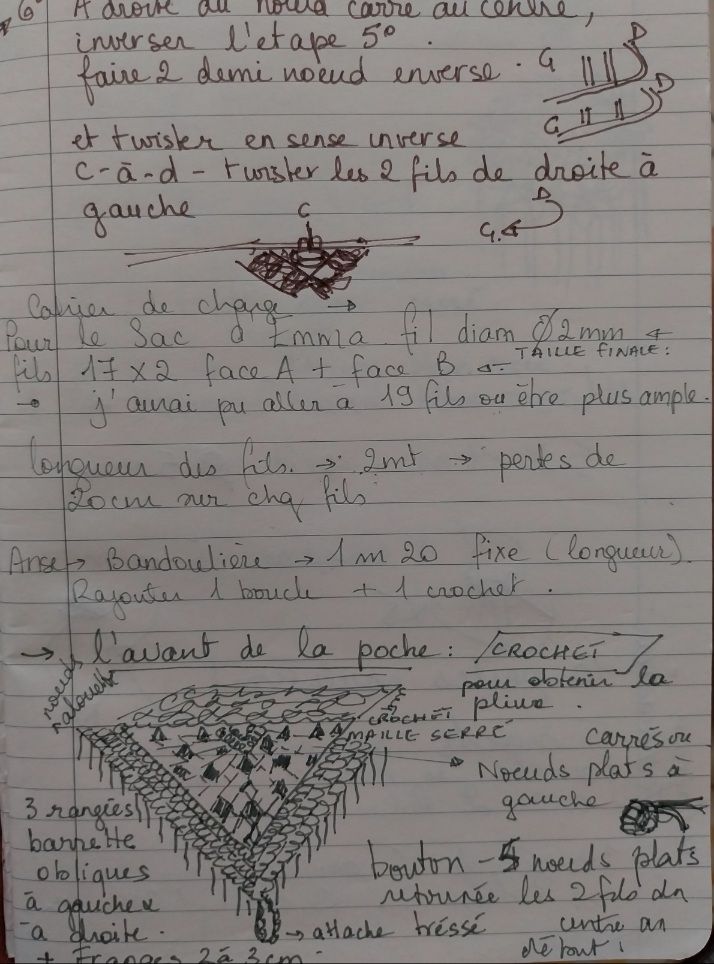 6° A droite du noeud carré au centre,
inverser l'etape 5°.
faire 2 demi noeud enverse. G D
G D
et twister en sense inverse
c-à-d - twister les 2 fils de droite à
gauche
C
D
G.
Cahier de charge →
Pour le Sac d'Emma fil diam Ø 2mm ←
TAILLE FINALE:
fils 17 x 2 face A + face B
→ j'aurai pu aller à 19 fils ou être plus ample.
longueur des fils. → 2mt → pertes de
20cm sur chq fils
Anse → Bandoulière → 1m 20 fixe (longueur).
Rajouter 1 boucle + 1 crochet.
→ l'avant de la poche: CROCHET
pour obtenir la
pliure.
noeuds
CROCHET
MAILLE SERRÉ
Carrés ou
Noeuds plats à
gauche
3 rangées
barrette
obliques
à gauche
à droite.
+ Franges 2 à 3cm.
→ attache tréssé
bouton - 5 noeuds plats
retournée les 2 fils du
centre au
début!